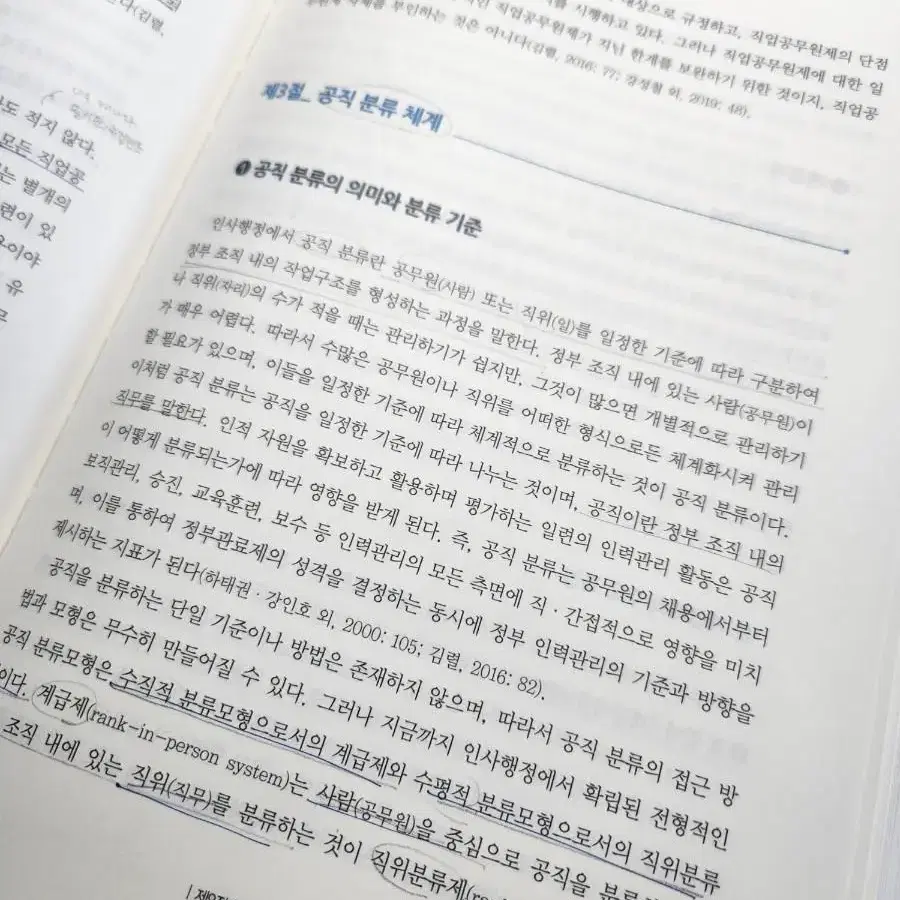 다(김렬,
도 적지 않다.
모든 직업공
는 별개의
련이 있
유
대상으로 규정하고, 직업공무원제의 단점
를 시행하고 있다. 그러나 직업공무원제에 대한 일
부인하는 것은 직업공무원제가 지닌 한계를 보완하기 위한 것이지, 직업공
아니다(김렬, 2016: 77; 강정철 외, 2019: 48).
제3절_ 공직 분류 체계
❶ 공직 분류의 의미와 분류 기준
인사행정에서 공직 분류란 공무원(사람) 또는 직위(일)를 일정한 기준에 따라 구분하여
정부 조직 내의 작업구조를 형성하는 과정을 말한다. 정부 조직 내에 있는 사람(공무원)이
나 직위(자리)의 수가 적을 때는 관리하기가 쉽지만, 그것이 많으면 개별적으로 관리하기
가 매우 어렵다. 따라서 수많은 공무원이나 직위를 어떠한 형식으로든 체계화시켜 관리
할 필요가 있으며, 이들을 일정한 기준에 따라 체계적으로 분류하는 것이 공직 분류이다.
이처럼 공직 분류는 공직을 일정한 기준에 따라 나누는 것이며, 공직이란 정부 조직 내의
직무를 말한다. 인적 자원을 확보하고 활용하며 평가하는 일련의 인력관리 활동은 공직
이 어떻게 분류되는가에 따라 영향을 받게 된다. 즉, 공직 분류는 공무원의 채용에서부터
보직관리, 승진, 교육훈련, 보수 등 인력관리의 모든 측면에 직·간접적으로 영향을 미치
며, 이를 통하여 정부관료제의 성격을 결정하는 동시에 정부 인력관리의 기준과 방향을
제시하는 지표가 된다(하태권·강인호 외, 2000: 105; 김렬, 2016: 82).
공직을 분류하는 단일 기준이나 방법은 존재하지 않으며, 따라서 공직 분류의 접근 방
법과 모형은 무수히 만들어질 수 있다. 그러나 지금까지 인사행정에서 확립된 전형적인
공직 분류모형은 수직적 분류모형으로서의 계급제와 수평적 분류모형으로서의 직위분류
이다. 계급제(rank-in-person system)는 사람(공무원)을 중심으로 공직을
조직 내에 있는 직위(직무)를 분류하는 것이 직위분류제